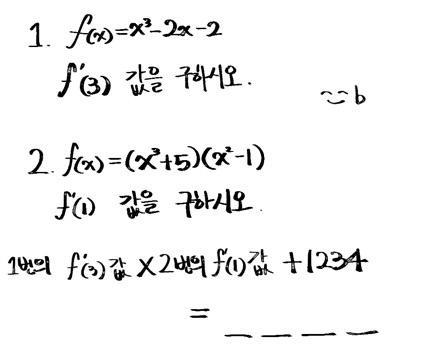 1. f(x)=x³-2x-2
f'(3) 값을 구하시오.
:)b
2. f(x)=(x³+5)(x²-1)
f'(1) 값을 구하시오.
1번의 f'(3)값 X 2번의 f'(1)값 +1234
= _ _ _ _